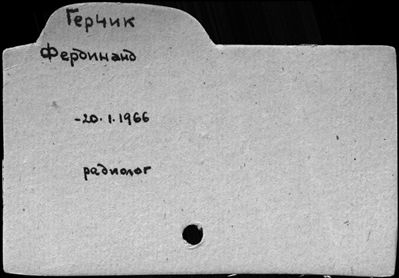 Герчик
Фердинанд
-20.1.1966
радиолог